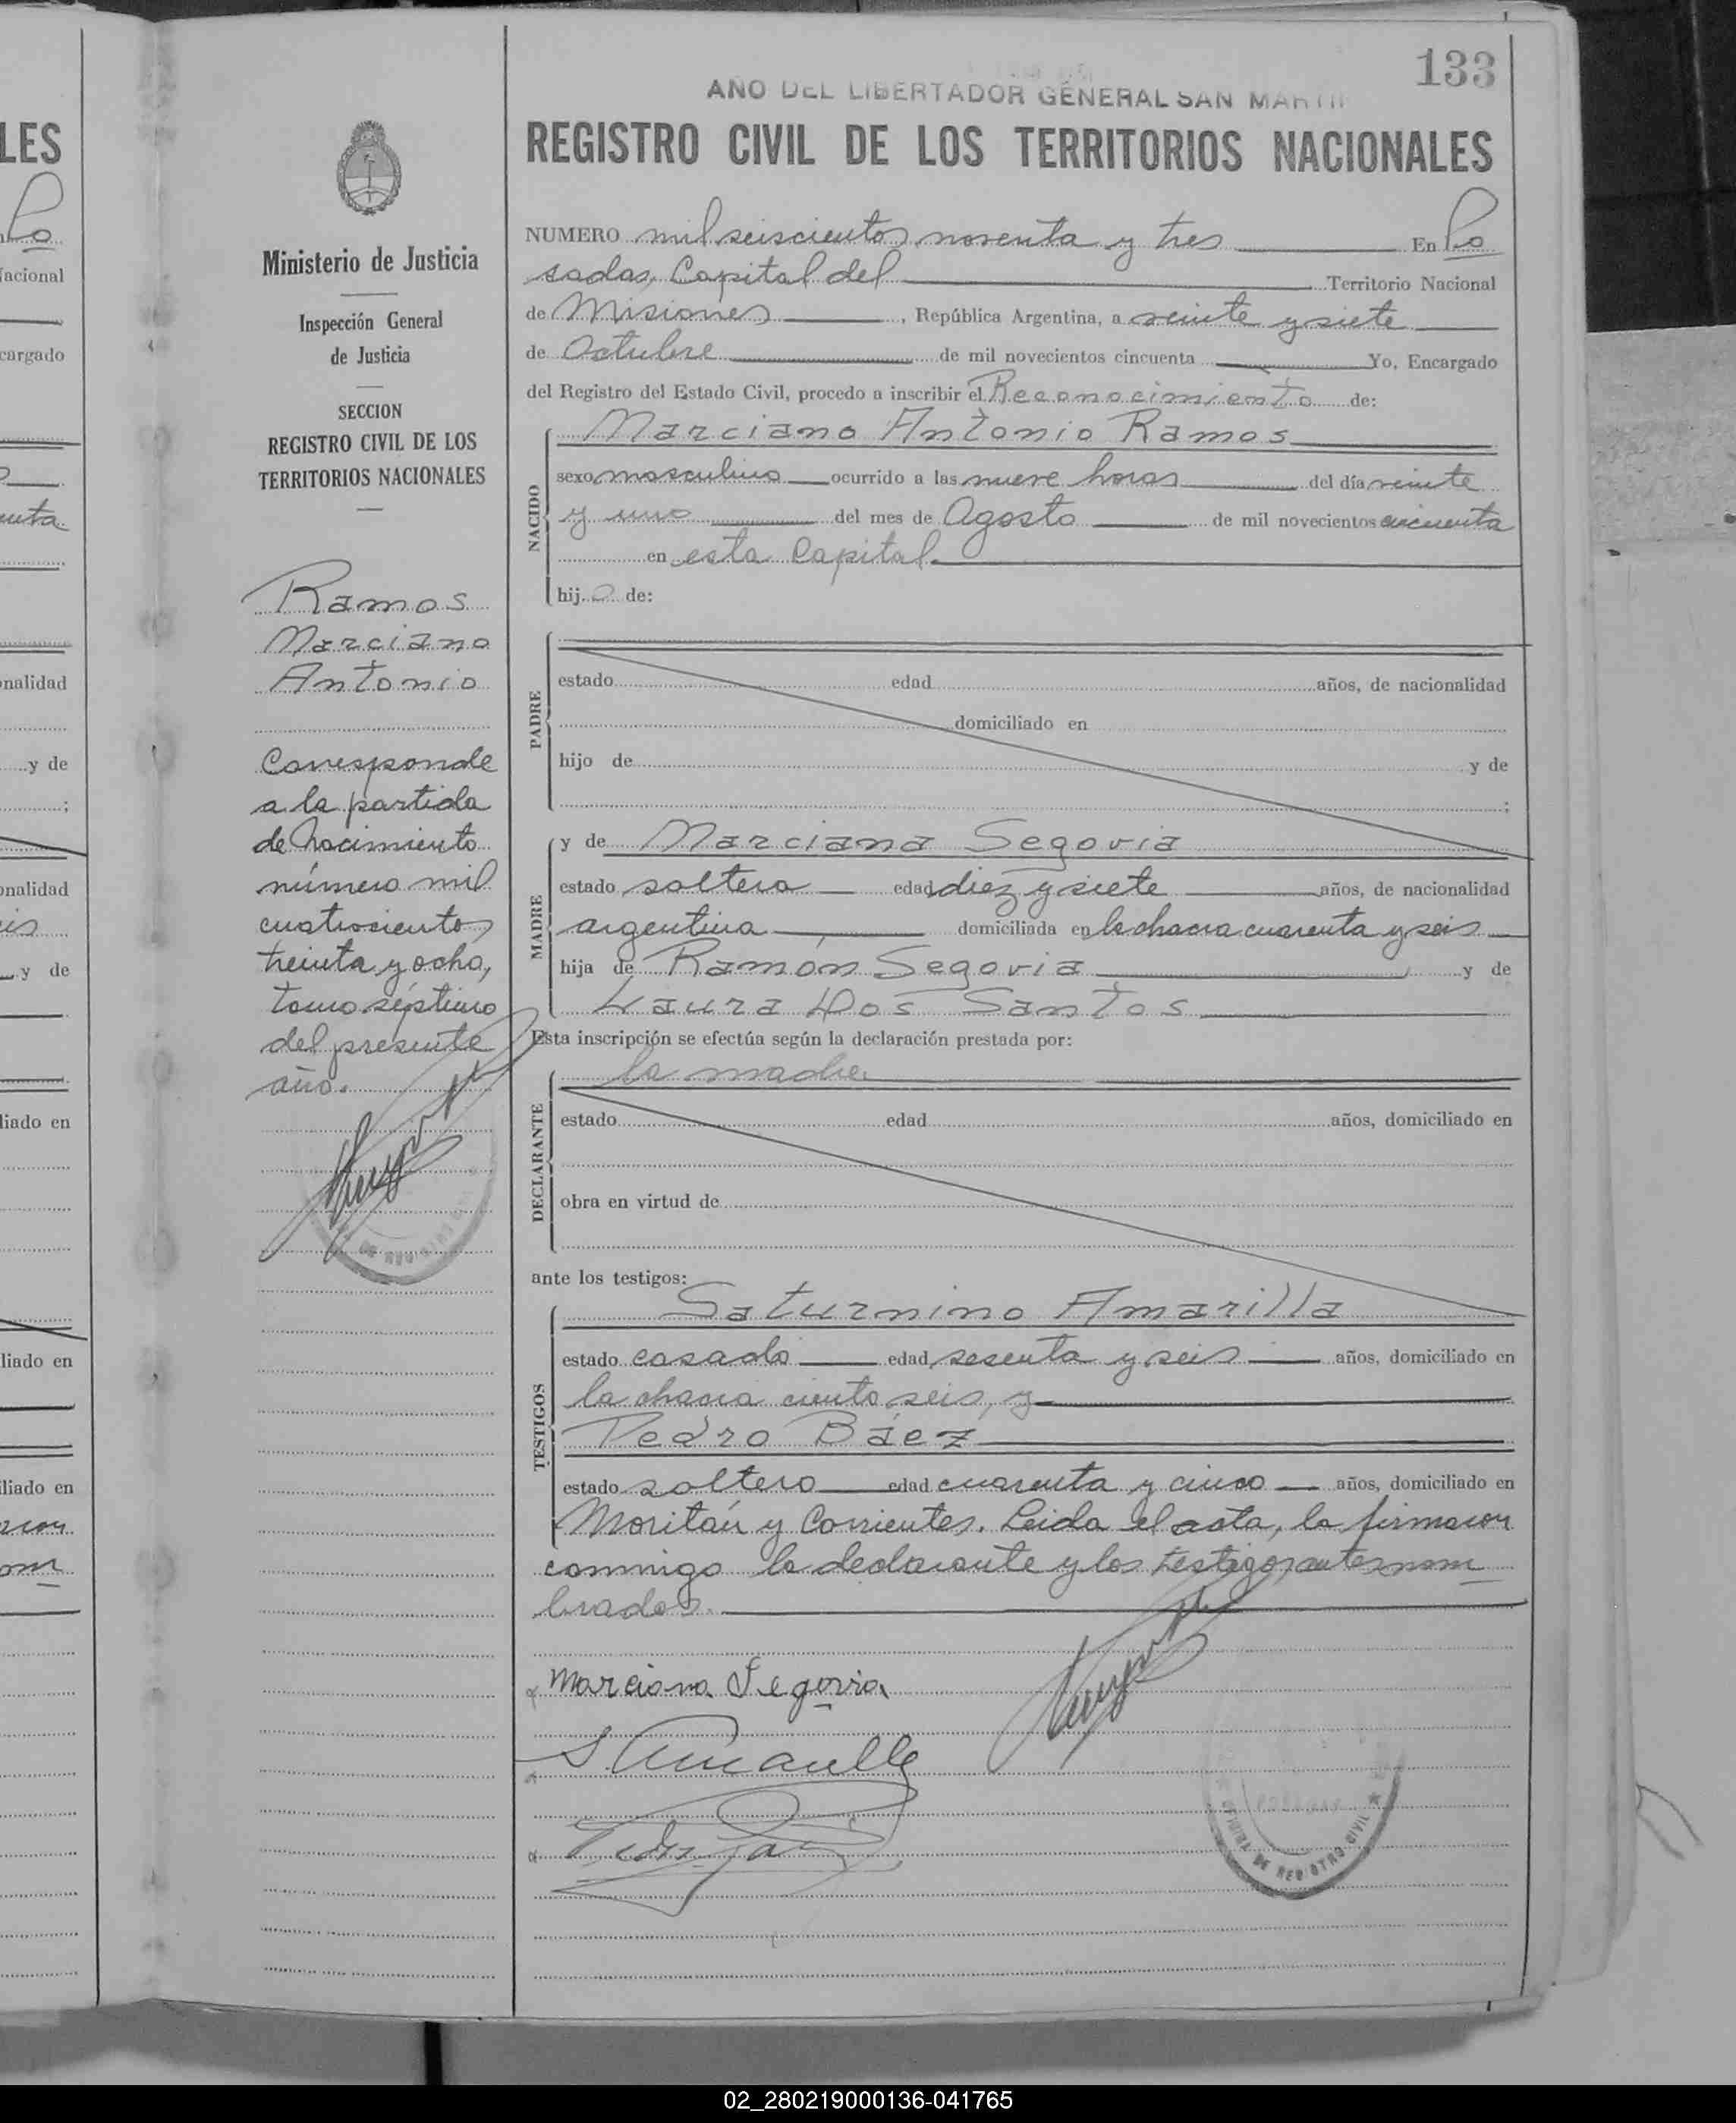 133
AÑO DEL LIBERTADOR GENERAL SAN MARTIN
REGISTRO CIVIL DE LOS TERRITORIOS NACIONALES
Ministerio de Justicia
Inspección General
de Justicia
SECCION
REGISTRO CIVIL DE LOS
TERRITORIOS NACIONALES
Ramos
Marciano
Antonio
Corresponde
a la partida
de Nacimiento
número mil
cuatrocientos
treinta y ocho,
tomo séptimo
del presente
año.
NUMERO mil seiscientos noventa y tres En Po
sadas, Capital del Territorio Nacional
de Misiones, República Argentina, a veinte y siete
de Octubre de mil novecientos cincuenta Yo, Encargado
del Registro del Estado Civil, procedo a inscribir el Reconocimiento de:
Marciano Antonio Ramos
NACIDO
sexo masculino ocurrido a las nueve horas del día veinte
y uno del mes de Agosto de mil novecientos cincuenta
en esta Capital.
hijo de:
PADRE
estado edad años, de nacionalidad
domiciliado en
hijo de y de
;
MADRE
y de Marciana Segovia
estado soltera edad diez y siete años, de nacionalidad
argentina domiciliada en la chacra cuarenta y seis
hija de Ramón Segovia y de
Laura Dos Santos
Esta inscripción se efectúa según la declaración prestada por:
la madre
DECLARANTE
estado edad años, domiciliado en
obra en virtud de
ante los testigos:
Saturnino Amarilla
TESTIGOS
estado casado edad sesenta y seis años, domiciliado en
la chacra ciento seis, y
Pedro Báez
estado soltero edad cuarenta y cinco años, domiciliado en
Moritán y Corrientes. Leida el acta, la firmaron
conmigo la declarante y los testigos antes nom
brados.
Marciana Segovia
S. Amarilla
OFICINA DE REGISTRO CIVIL
LES
Po
Nacional
cargado
nalidad
y de
;
onalidad
y de
liado en
liado en
iliado en
02_280219000136-041765